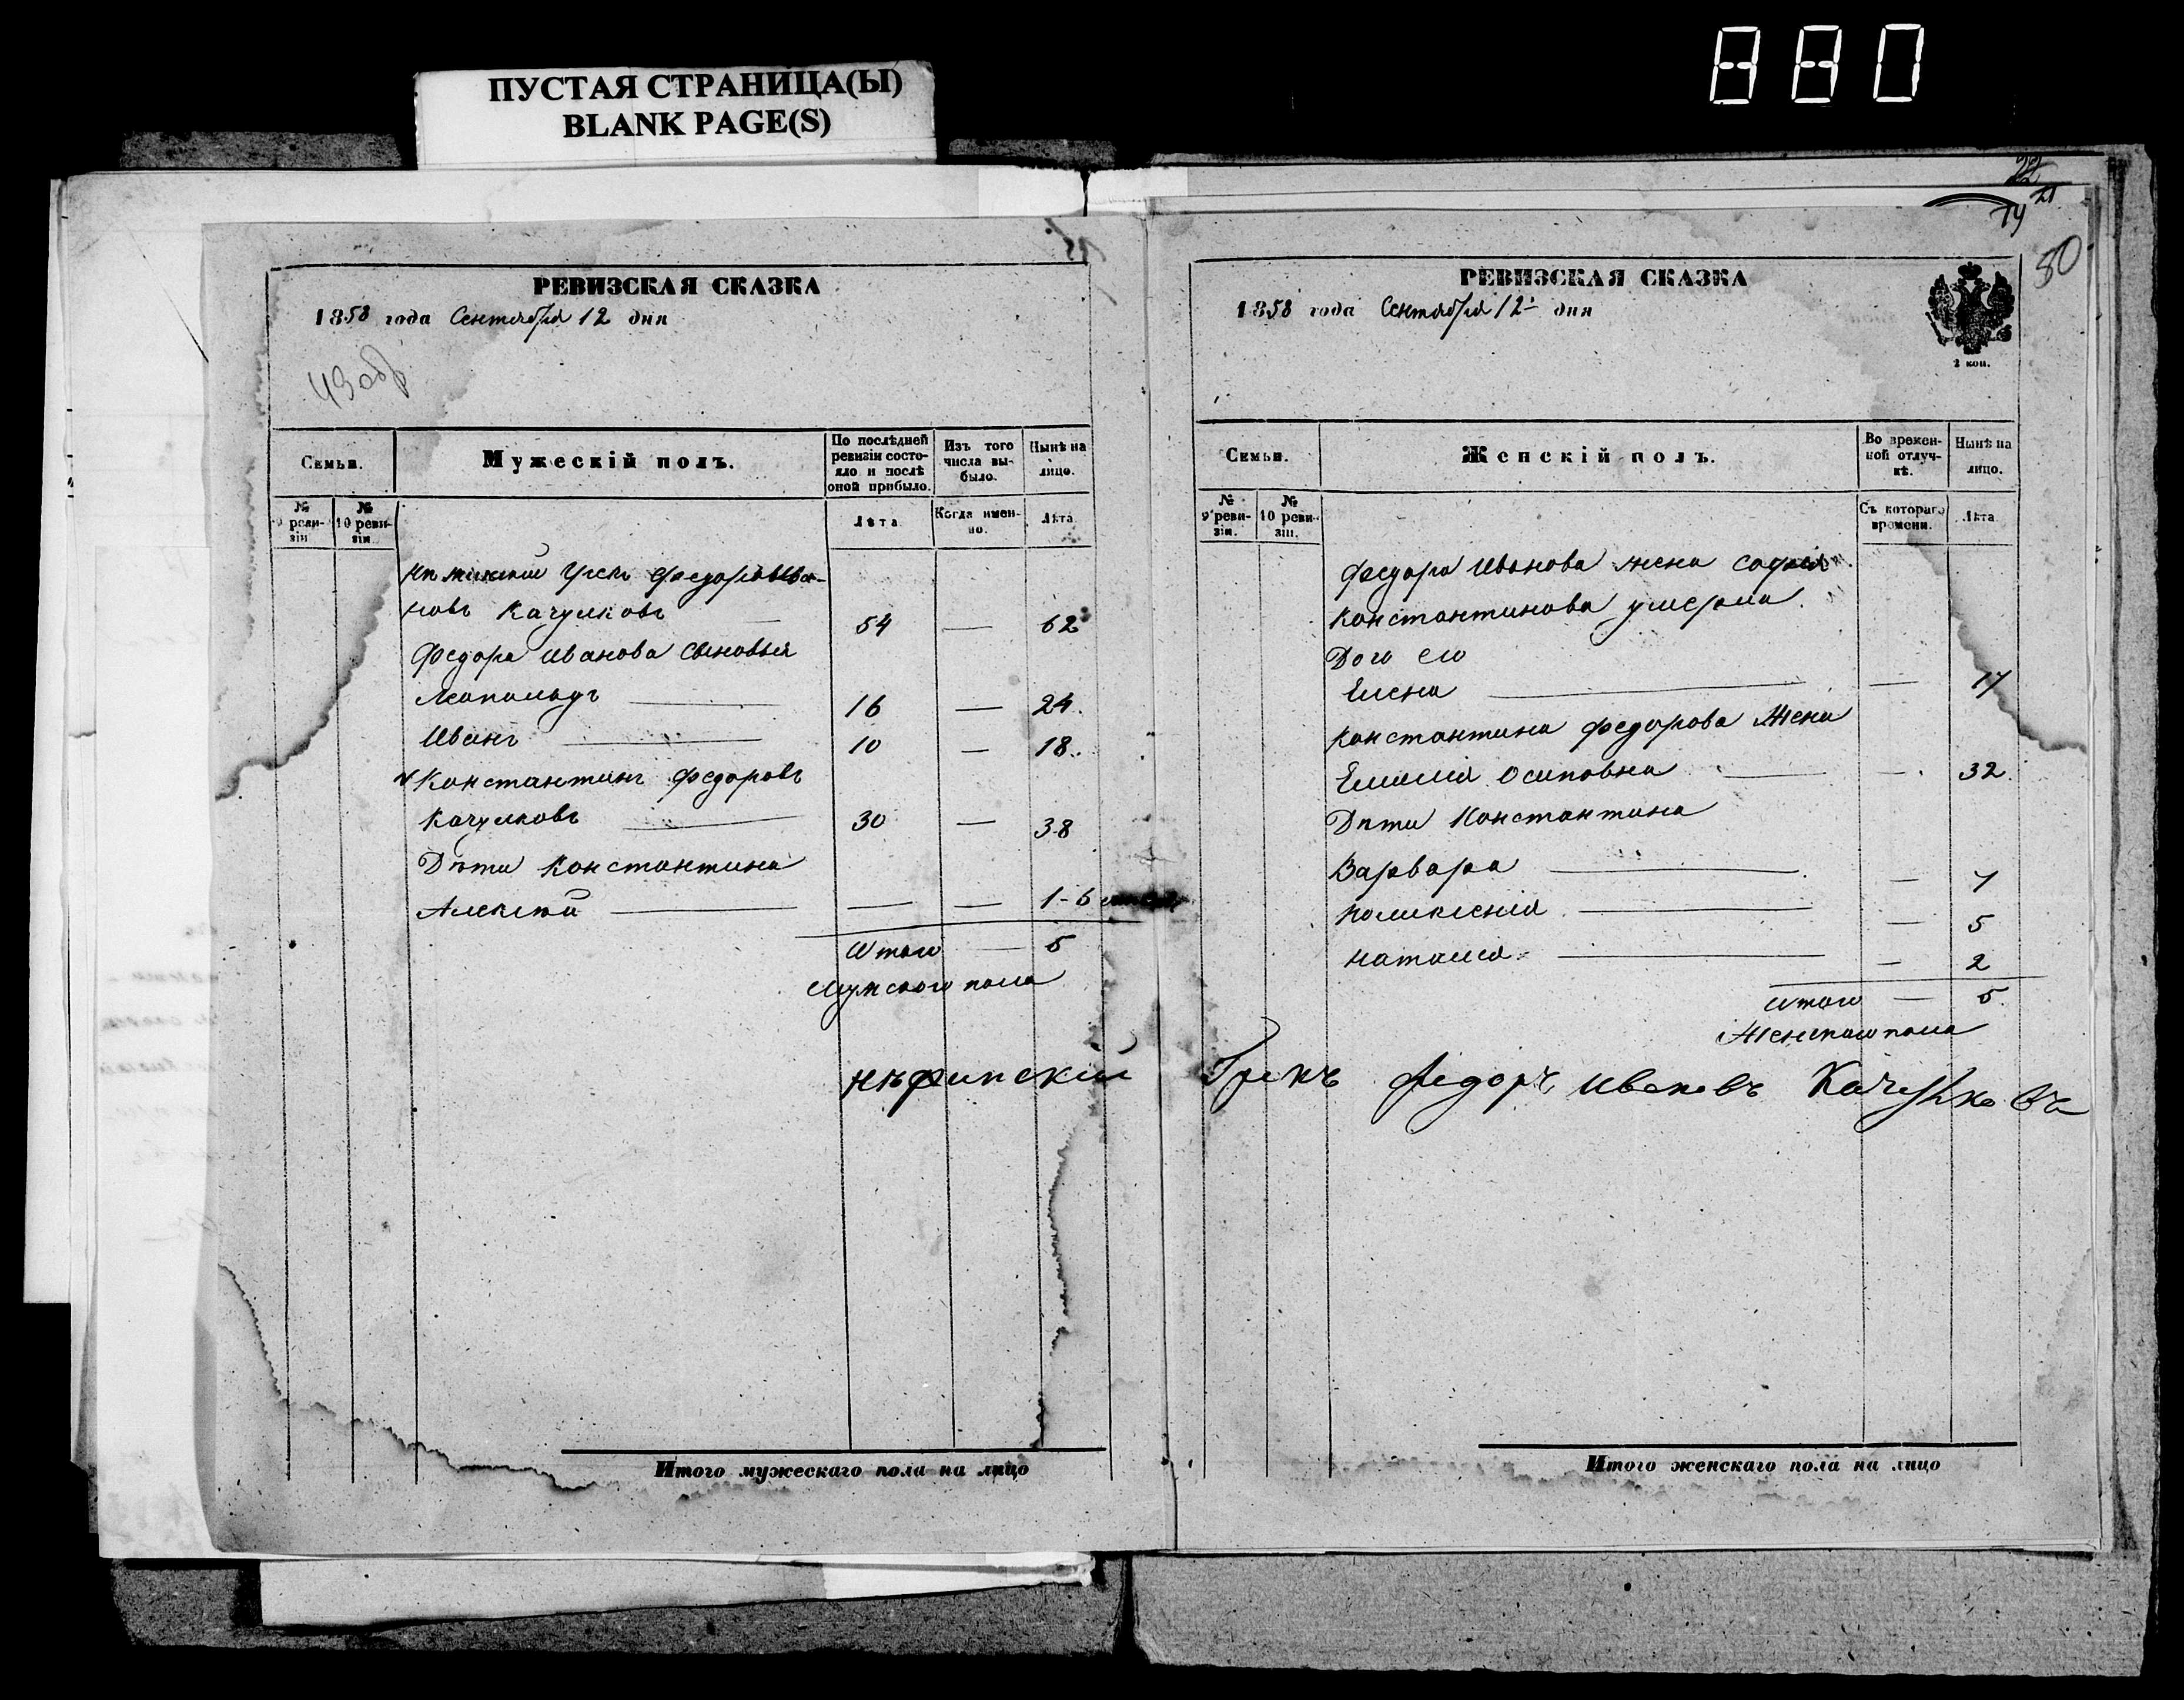 ПУСТАЯ СТРАНИЦА(Ы)
BLANK PAGE(S)
880
РЕВИЗСКАЯ СКАЗКА
1858 года Сентября 12 дня
43 обр
Семьи.
Мужескій полъ.
По послѣдней ревизіи состояло и послѣ оной прибыло.
Изъ того числа выбыло.
Нынѣ на лицо.
№ 9 ревизіи
№ 10 ревизіи.
Лѣта
Когда именно.
Лѣта.
Нѣжинскій Грекъ Федоръ Ива-
новъ Качулковъ 54 — 62
Федора Иванова сыновья
Леопольдъ — 16 — 24.
Иванъ — 10 — 18.
Константинъ Федоровъ
Качулковъ — 30 — 38
Дѣти Константина
Алексѣй — — — 1-6
Итого — 5
Мужского пола
Итого мужескаго пола на лицо
22
21
80
РЕВИЗСКАЯ СКАЗКА
1858 года Сентября 12 дня
2 коп.
Семьи.
Женскій полъ.
Во временной отлучкѣ.
Нынѣ на лицо.
№ 9 ревизіи.
№ 10 ревизіи.
Съ котораго времени.
Лѣта
Федора Иванова жена София
Константинова умерла.
Дочь его
Елена — — 17
Константина Федорова Жена
Емилия Осиповна — —. 32.
Дѣти Константина
Варвара — — 7
— — 5
Наталия — — 2
Итого — 5.
Женского пола
Грекъ Федоръ Ивановъ Качулковъ
Итого женскаго пола на лицо